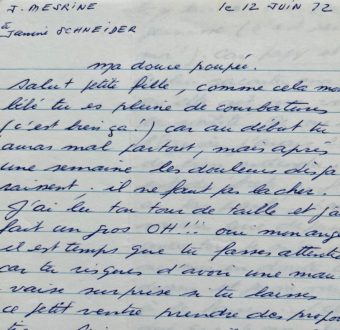 J. MESRINE le 12 JUIN 72
à
Janine SCHNEIDER
ma douce poupée.
Salut petite fille, comme cela mon
bébé tu es pleine de courbatures
(c'est bien ça!) car au début tu
auras mal partout, mais après
une semaine les douleurs dispa
raissent. il ne faut pas lacher.
J'ai lu ton tour de taille et j'ai
fait un gros OH!!! oui mon ange
il est temps que tu fasses attention
car tu risques d'avoir une mau
vaise surprise si tu laisses
ce petit ventre prendre des propor